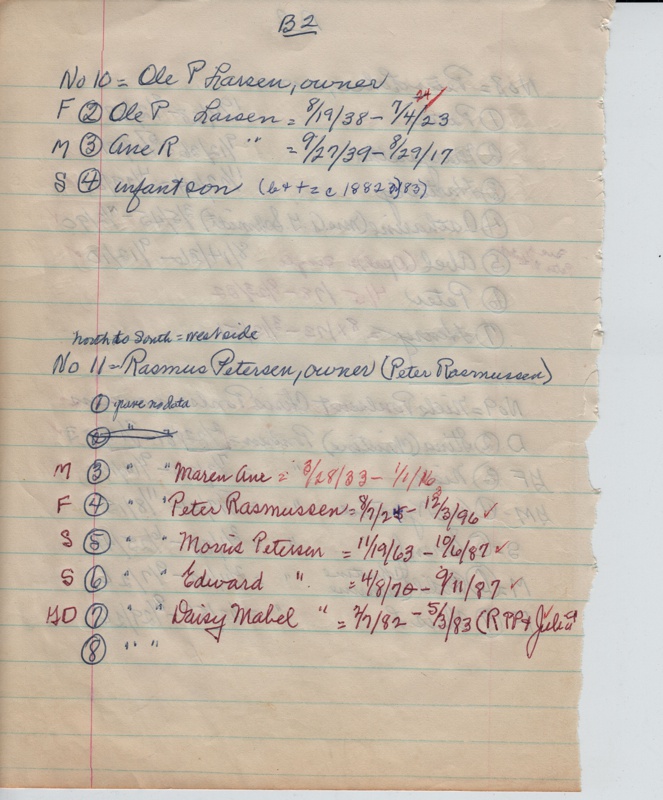 B2
No 10 = Ole P Larsen, owner
F ② Ole P Larsen = 8/19/38 - 7/4/23 24
M ③ Ane R " = 9/27/39 - 8/29/17
S ④ infant son (b + t = c 1882
North to South = West side
No 11 = Rasmus Petersen, owner (Peter Rasmussen)
① grave no data
② " "
M ③ " " Maren Ane = 3/28/33 - 1/1/16
F ④ " " Peter Rasmussen = 8/7/2 - 12/3/96 ✓
S ⑤ " " Morris Petersen = 11/19/63 - 10/6/87 ✓
S ⑥ " " Edward " = 4/8/70 - 9/11/87 ✓
⑦ " " Daisy Mabel " = 2/7/82 - 5/3/83 (R PP +
⑧ " "